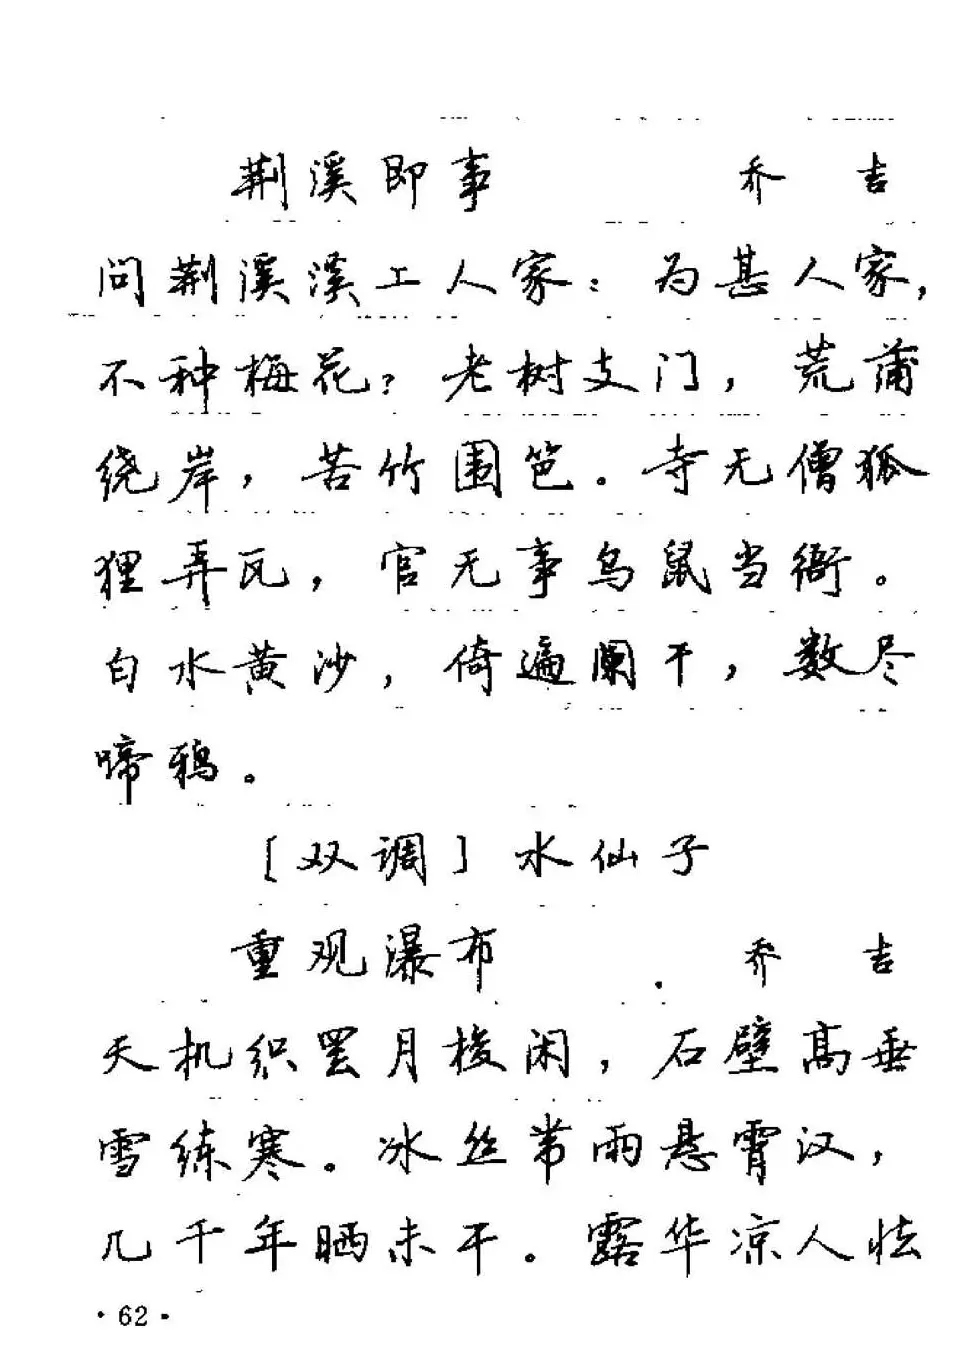 荆溪即事 乔吉
问荆溪溪上人家：为甚人家，
不种梅花？老树支门，荒蒲
绕岸，苦竹围笆。寺无僧狐
狸弄瓦，官无事乌鼠当衙。
白水黄沙，倚遍阑干，数尽
啼鸦。
［双调］水仙子
重观瀑布 乔吉
天机织罢月梭闲，石壁高垂
雪练寒。冰丝带雨悬霄汉，
几千年晒未干。露华凉人怯
·62·